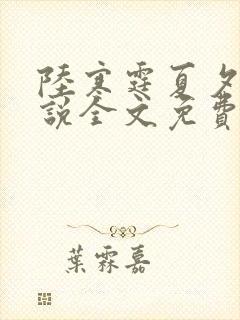 陸寒霆夏夕
說全文免費
葉霖嘉